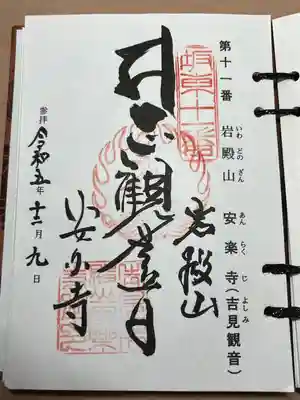 第十一番 岩殿山 安楽寺(吉見観音)
いわ どの さん あん らく じ よしみ
坂東十一番
岩殿山
観世音
安楽寺
参拝 令和五年 十二月 九日